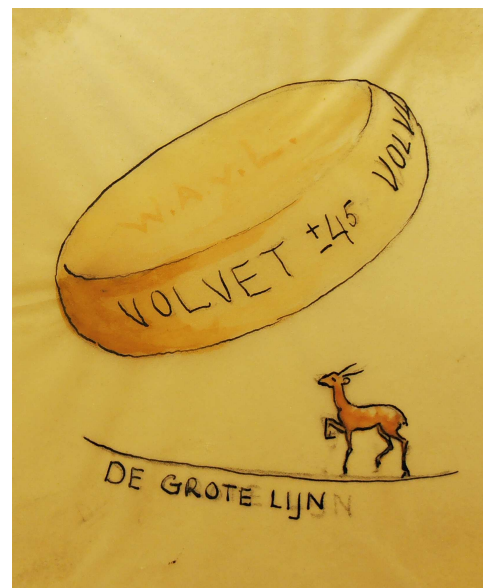 W.A.v.L.
VOLVET ±45 VOLV
DE GROTE LIJN